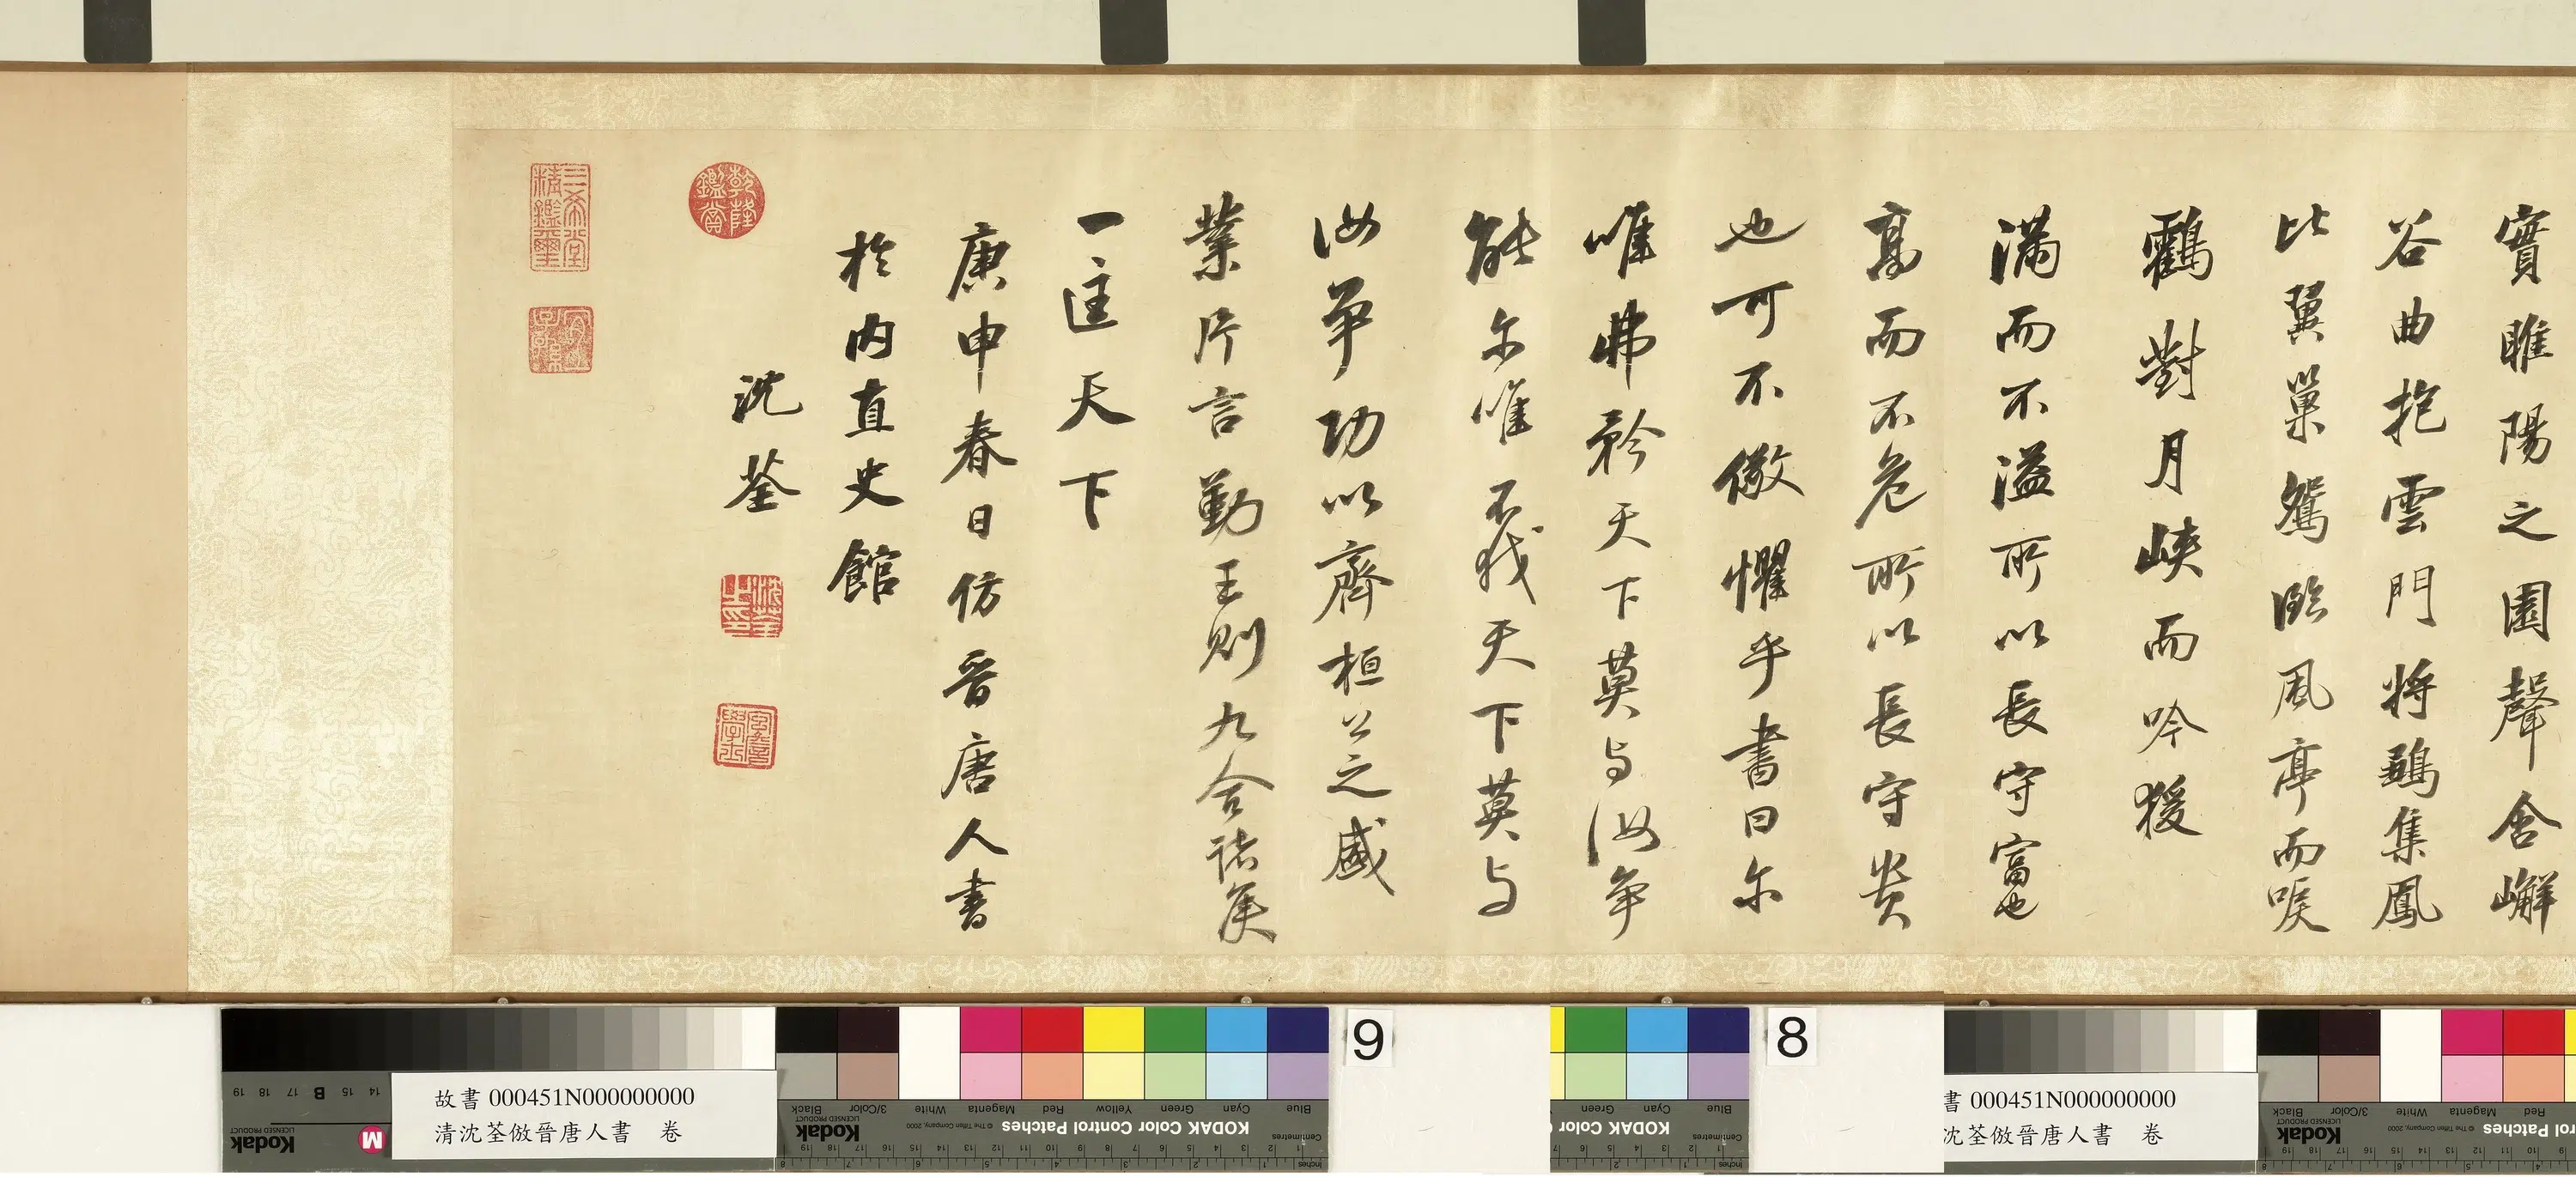 實睢陽之園聲含嶰
谷曲抱雲門將鵾集鳳
比翼巢鴛臨風亭而唳
鶴對月峽而吟猨
滿而不溢所以長守富也
高而不危所以長守貴
也可不儆懼乎書曰尔
唯弗矜天下莫与汝争
能尔唯不伐天下莫与
汝争功以齊桓公之盛
業片言勤王則九合諸侯
一匡天下
庚申春日仿晉唐人書
於内直史館
沈荃
乾隆鑑賞
三希堂精鑑璽
宜子孫
沈荃之印
9
8
故書 000451N000000000
清沈荃倣晉唐人書 卷
書 000451N000000000
沈荃倣晉唐人書 卷
KODAK Color Control Patches
© The Tiffen Company, 2000
Kodak
LICENSED PRODUCT
Blue Cyan Green Yellow Red Magenta White 3/Color Black
Centimetres
Inches